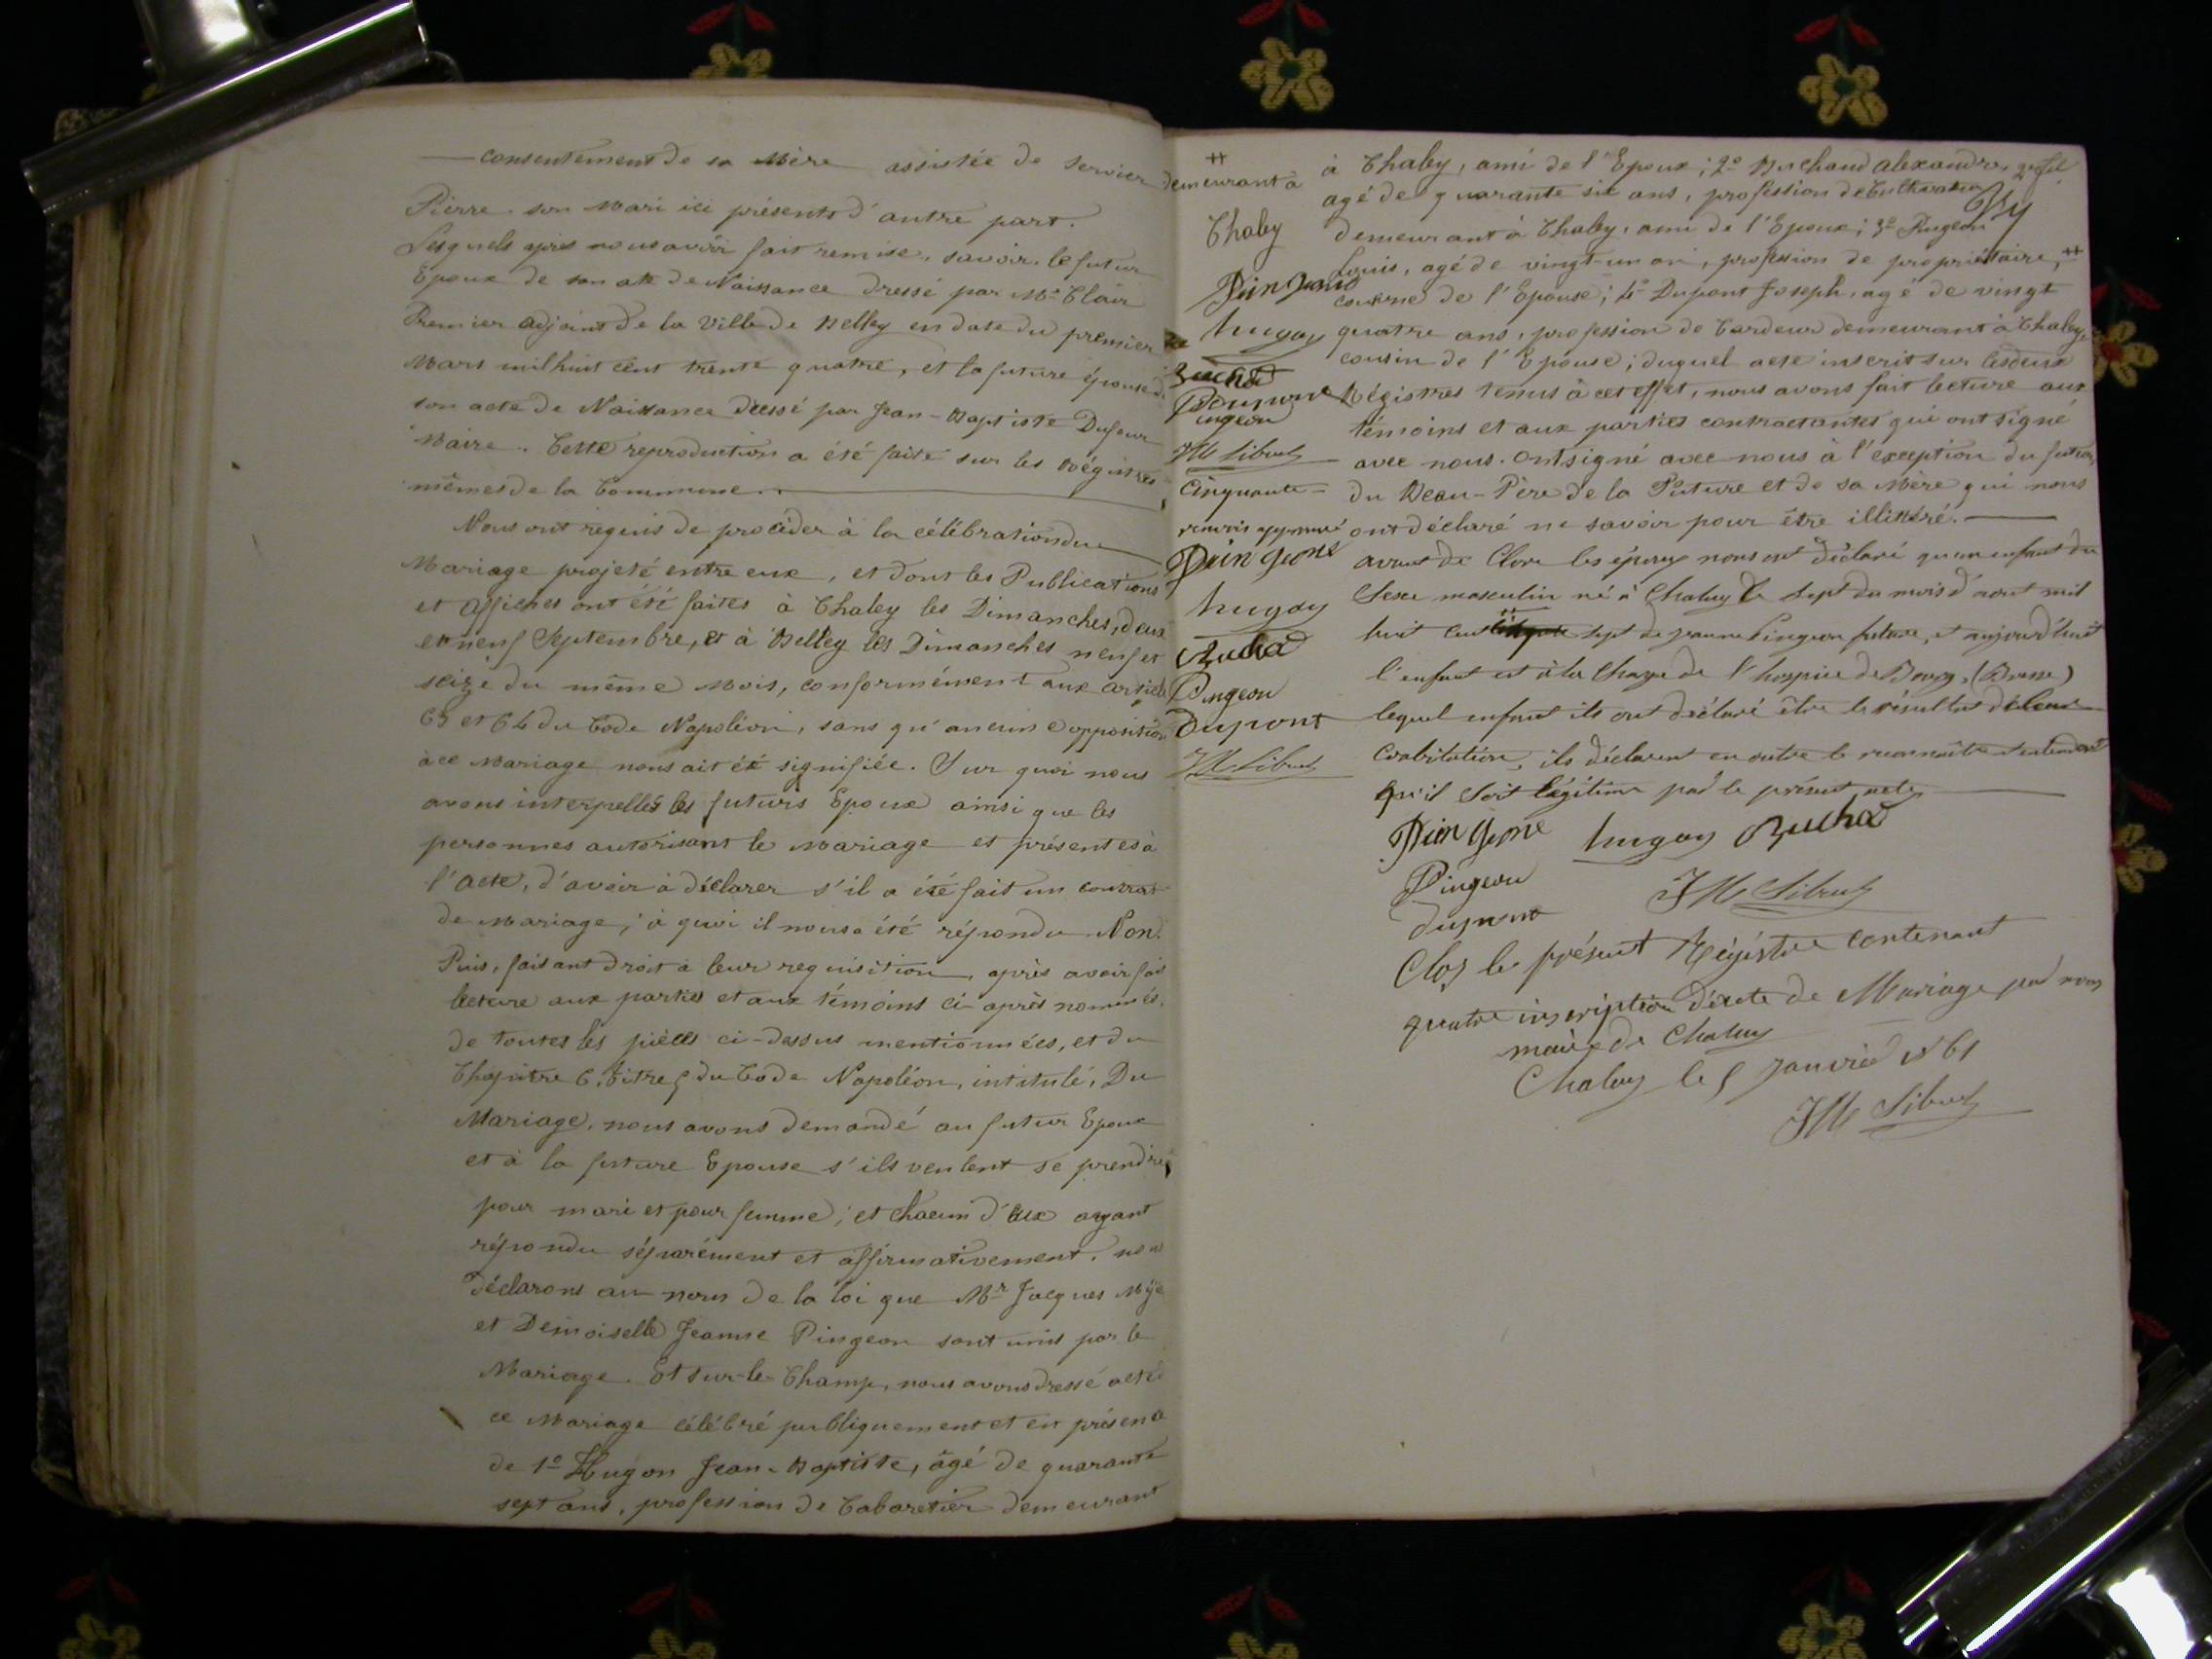 consentement de sa Mère assistée de Servier
Pierre son Mari ici présents d'autre part.
Lesquels après nous avoir fait remise, savoir, le futur
Epoux de son acte de Naissance dressé par Mr Clair
Premier adjoint de la Ville de Belley en date du premier
Mars mil huit cent trente quatre, et la future épouse de
son acte de Naissance dressé par Jean-Baptiste Dufour
Maire. Cette reproduction a été faite sur les Régistres
mêmes de la Commune.
Nous ont requis de procéder à la célébration du
Mariage projeté entre eux, et dont les Publications
et Affiches ont été faites à Chaley les Dimanches, deux
et neuf Septembre, et à Belley les Dimanches neuf et
seize du même Mois, conformément aux articles
63 et 64 du Code Napoléon, sans qu'aucune opposition
à ce Mariage nous ait été signifiée. Sur quoi nous
avons interpellés les futurs Epoux ainsi que les
personnes autorisant le Mariage et présentes à
l'acte, d'avoir à déclarer s'il a été fait un contrat
de Mariage; à quoi il nous a été répondu Non.
Puis, faisant droit à leur requisition, après avoir fait
lecture aux parties et aux témoins ci-après nommés,
de toutes les pièces ci-dessus mentionnées, et du
Chapitre 6, titre 5 du Code Napoléon, intitulé, Du
Mariage, nous avons demandé au futur Epoux
et à la future Epouse s'ils veulent se prendre
pour mari et pour femme; et chacun d'eux ayant
répondu séparément et affirmativement, nous
déclarons au nom de la loi que Mr Jacques
et Demoiselle Jeanne Pingeon sont unis par le
Mariage. Et sur-le-Champ, nous avons dressé acte
ce Mariage célébré publiquement et en présence
de 1º Hugon Jean-Baptiste, âgé de quarante
sept ans, profession de Cabaretier demeurant
à Chaley, ami de l'Epoux; 2º Buchaud Alexandre,
agé de quarante six ans, profession de Cultivateur
demeurant à Chaley, ami de l'Epoux; 3º Pingeon
Louis, agé de vingt-un an, profession de propriétaire, ++
cousine de l'Epouse; 4º Dupont Joseph, agé de vingt
quatre ans, profession de Cardeur demeurant à Chaley,
cousin de l'Epouse; duquel acte inscrit sur les deux
Régistres tenus à cet effet, nous avons fait lecture aux
témoins et aux parties contractantes qui ont signé
avec nous. Ont signé avec nous à l'exception du futur,
du Beau-Père de la Future et de sa Mère qui nous
ont déclaré ne savoir pour être illittré.
avant de Clore les époux nous ont déclaré qu'un enfant du
Sexe masculin né à Chaley le sept du mois d'aout mil
huit cent sept de Jeanne Pingeon future, et aujourd'huit
l'enfant est à la charge de l'hospice de Bourg, (Bresse)
lequel enfant ils ont déclaré être le résultat de leur
coabitation, ils déclarent en outre le reconnaître et entendent
qu'il soit légitime par le présent acte
Pingeone hugon Buchd
Pingeon
dupont JM Sibuet
Clos le présent Régistre contenant
quatre inscription d'acte de Mariage par nous
maire de Chaley
Chaley le 5 janvié 1861
JM Sibuet
++
demeurant à
Chaley
Pingeone
hugon
Buchd
Dupont
Pingeon
JM Sibuet
Cinquante
renvois approuvé
Pingeone
hugon
Buchd
Pingeon
Dupont
JM Sibuet